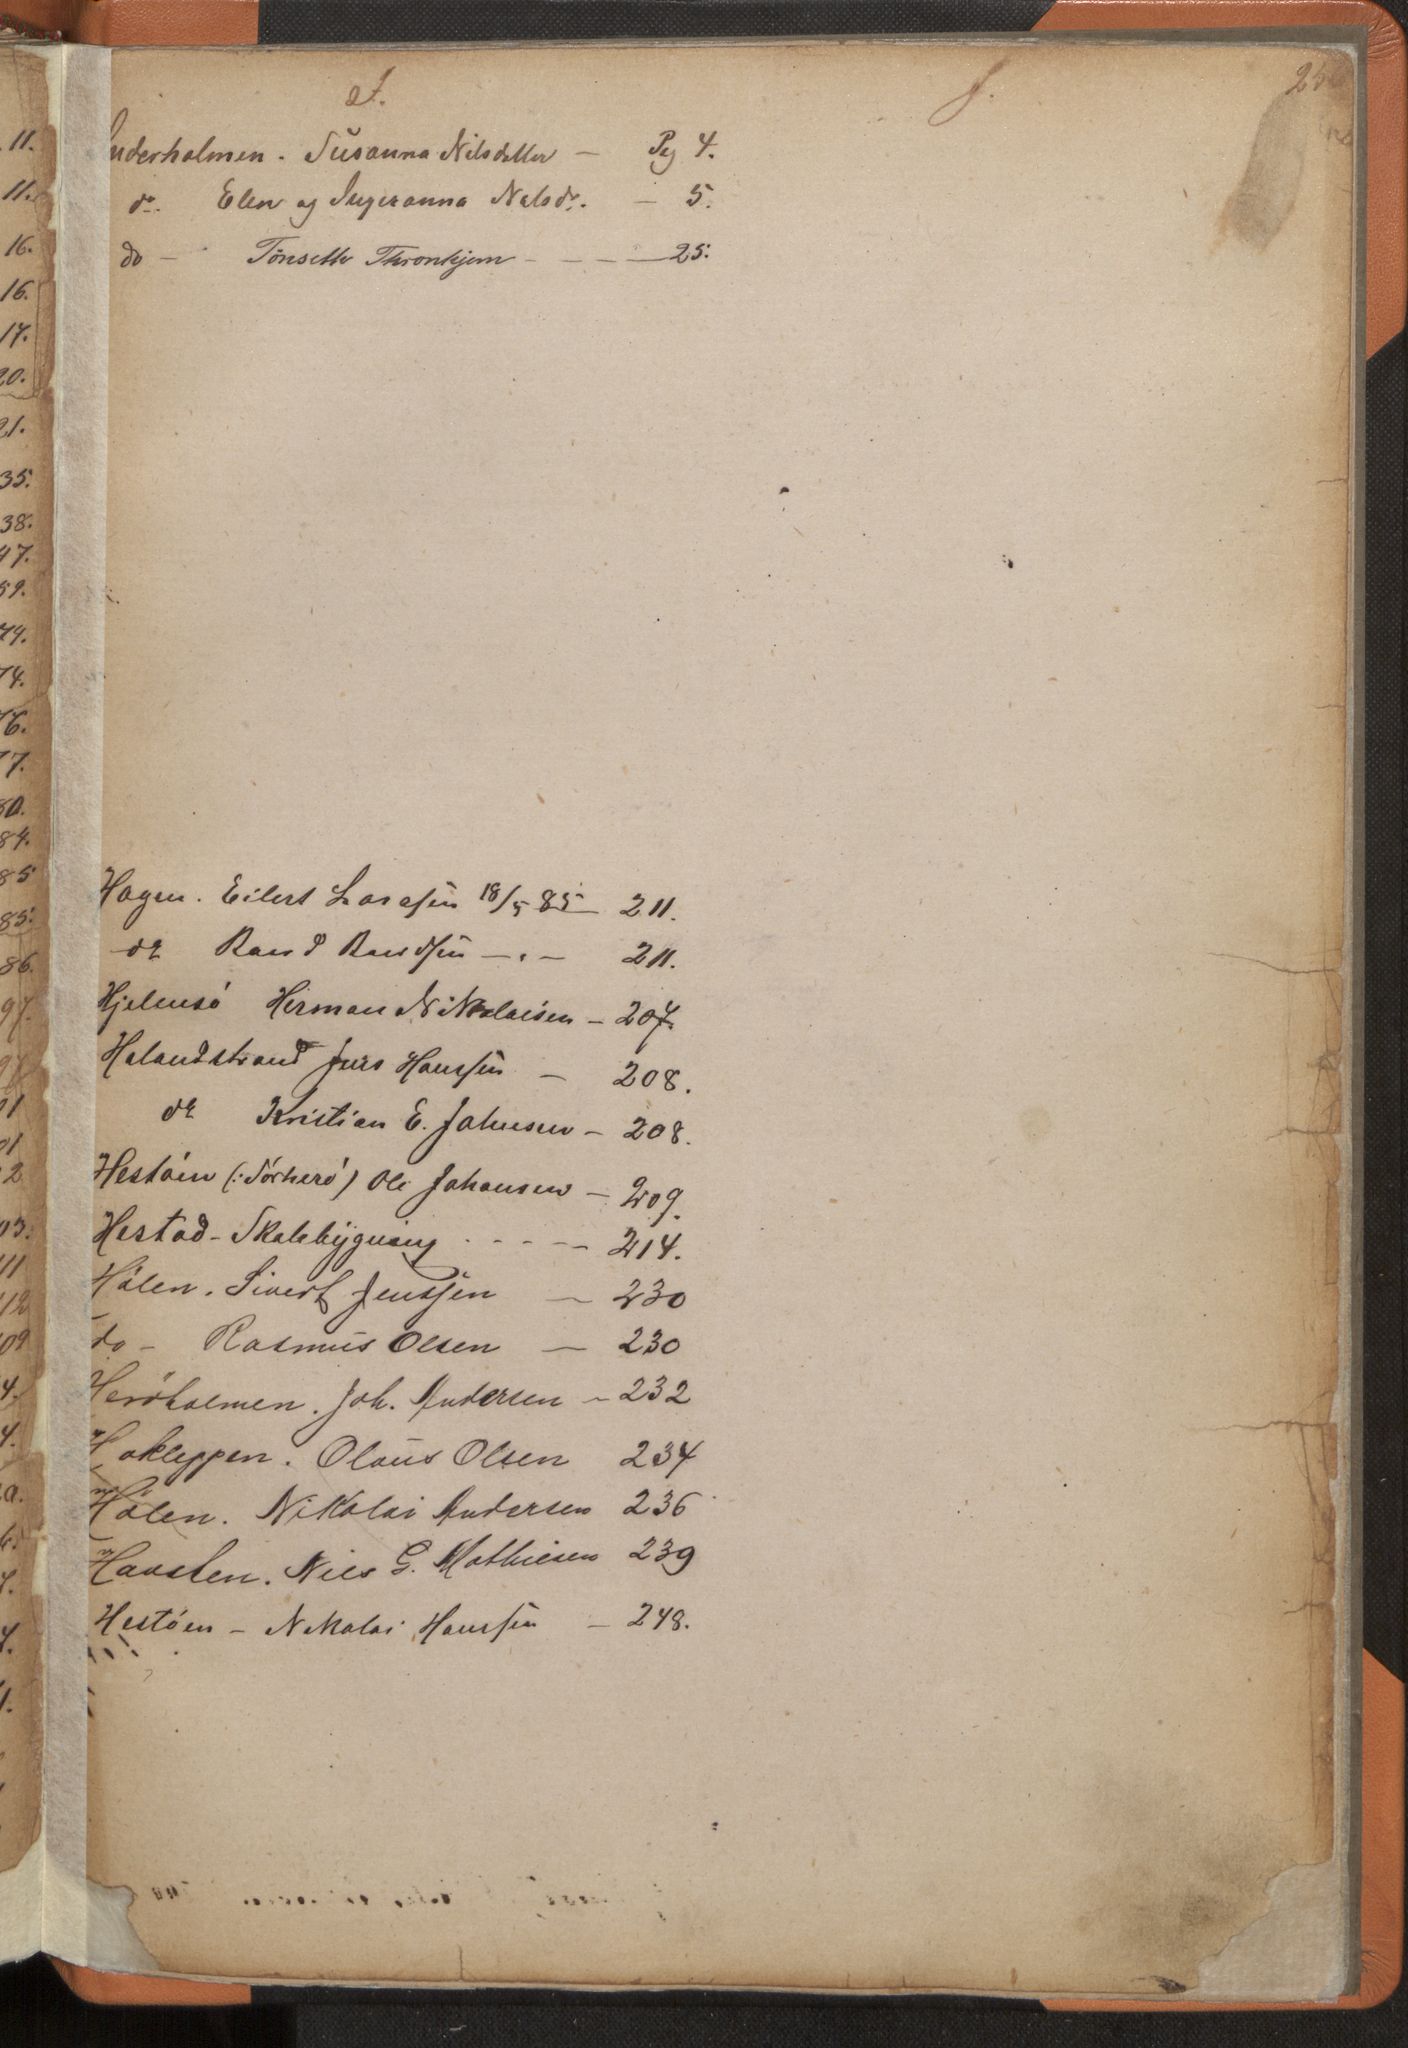 11.
11.
16.
16.
17.
20.
21.
35.
38.
47.
59.
74.
74.
76.
77.
80.
84.
85
85.
86.
97.
I.
J.
Inderholmen. Susanna Nilsdatter — Pg 4.
do. Elen og Ingeranna Nelsdr. — 5.
do — Tönsette Thronhjem — — — — 25.
Hagen. Eilert Larssen 18/5 85 — 211.
do Rand Randsen — „ — 211.
Hjelmsö Herman Nikolaisen — 207.
Halandstrand Jens Hanssen — 208.
do Kristian E. Johnsen — 208.
Hestöen (: Sörherö) Ole Johansen — 209.
Hestad — Skolebygning - - - - — 214.
Hölen. Sivert Jenssen — 230
do — Rasmus Olsen — 230
Heröholmen. Joh. Andersen — 232
Hakleppen. Olaus Olsen 234
Hölen. Nikolai Andersen 236
Havsten. Niels G. Mathiesen 239
Hestöen — Nikolai Hanssen — 248.